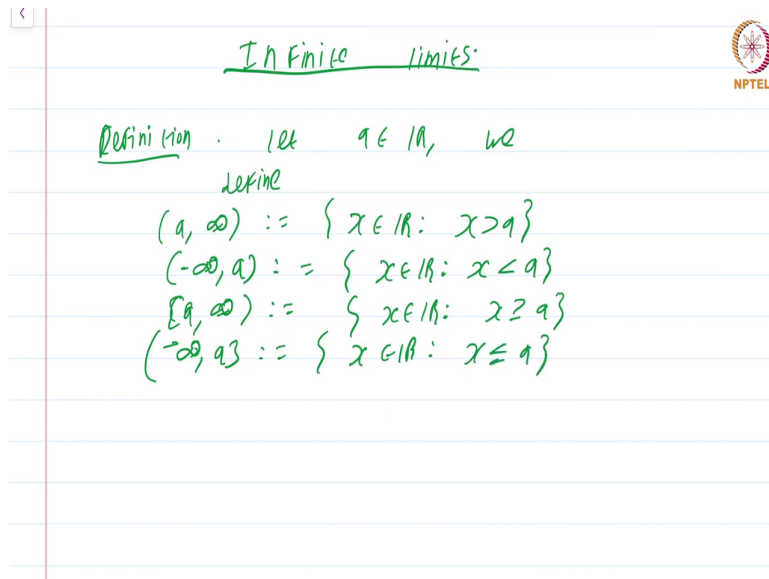 Infinite limits.
NPTEL
Definition. let a ∈ ℝ, we
define
(a, ∞) := { x ∈ ℝ : x > a }
(-∞, a) := { x ∈ ℝ : x < a }
[a, ∞) := { x ∈ ℝ : x ≥ a }
(-∞, a] := { x ∈ ℝ : x ≤ a }